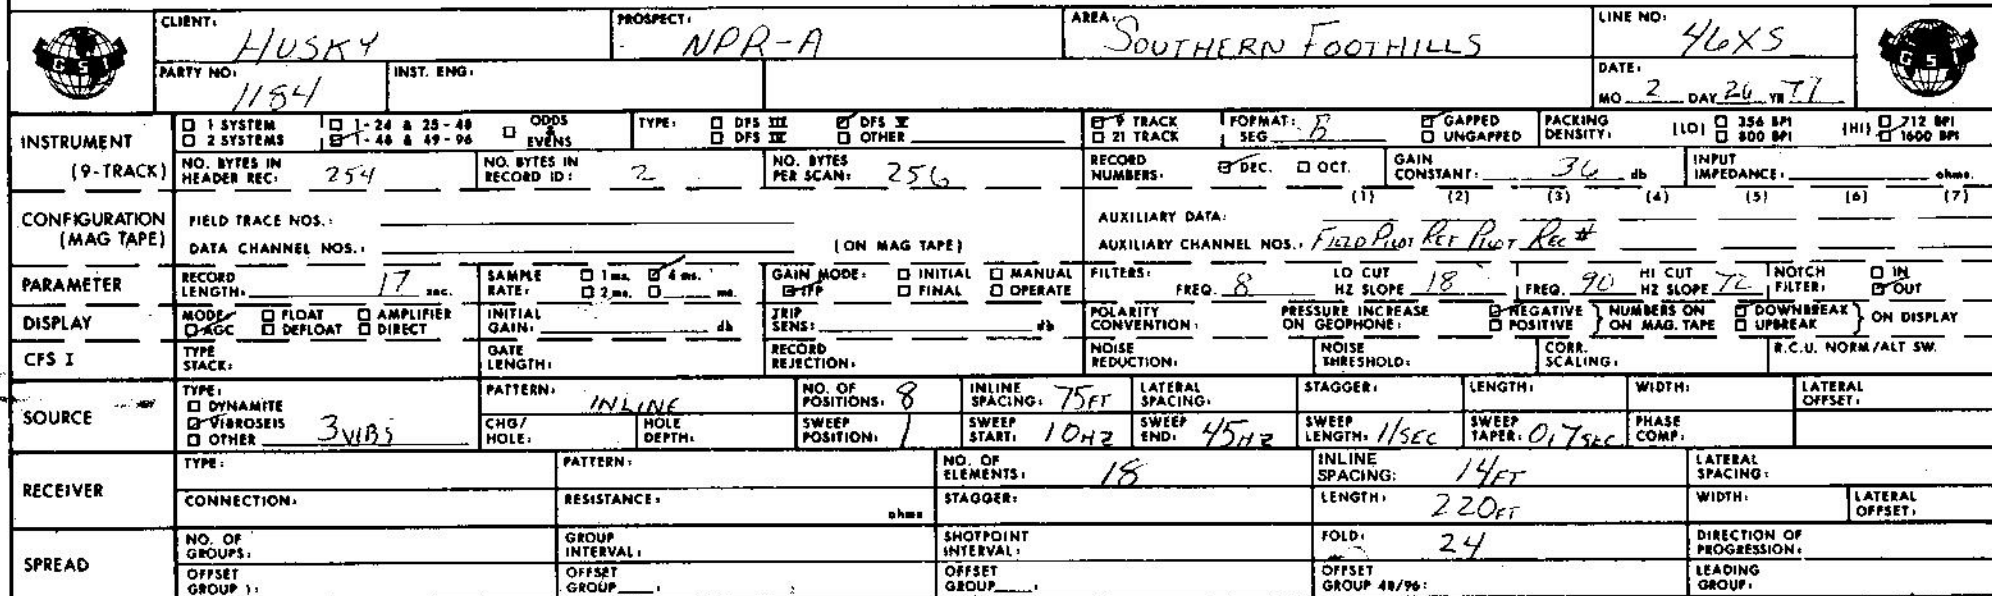 CLIENT: HUSKY PROSPECT: NPR-A AREA: SOUTHERN FOOTHILLS LINE NO: 46XS
GSI GSI
PARTY NO: 1184 INST. ENG: DATE: MO 2 DAY 26 YR 77
INSTRUMENT (9-TRACK)
☐ 1 SYSTEM ☐ 1-24 & 25-48 ☐ ODDS & EVENS TYPE: ☐ DFS III ☑ DFS V ☑ 9 TRACK FORMAT: SEG B ☑ GAPPED PACKING DENSITY: (LO) ☐ 356 BPI (HI) ☐ 712 BPI
☐ 2 SYSTEMS ☑ 1-48 & 49-96 ☐ DFS IV ☐ OTHER ☐ 21 TRACK ☐ UNGAPPED ☐ 800 BPI ☑ 1600 BPI
NO. BYTES IN HEADER REC: 254 NO. BYTES IN RECORD ID: 2 NO. BYTES PER SCAN: 256 RECORD NUMBERS: ☑ DEC. ☐ OCT. GAIN CONSTANT: 36 db INPUT IMPEDANCE: ohms.
CONFIGURATION (MAG TAPE)
(1) (2) (3) (4) (5) (6) (7)
FIELD TRACE NOS.: AUXILIARY DATA:
DATA CHANNEL NOS.: (ON MAG TAPE) AUXILIARY CHANNEL NOS.: FIELD PILOT REF PILOT REC #
PARAMETER RECORD LENGTH: 17 sec. SAMPLE RATE: ☐ 1 ms. ☑ 4 ms. ☐ 2 ms. ☐ ms. GAIN MODE: ☐ INITIAL ☐ MANUAL ☑ IFP ☐ FINAL ☐ OPERATE FILTERS: FREQ. 8 LO CUT HZ SLOPE 18 FREQ. 90 HI CUT HZ SLOPE 72 NOTCH FILTER: ☐ IN ☑ OUT
DISPLAY MODE: ☐ FLOAT ☐ AMPLIFIER ☑ AGC ☐ DEFLOAT ☐ DIRECT INITIAL GAIN: db TRIP SENS: db POLARITY CONVENTION: PRESSURE INCREASE ON GEOPHONE: ☑ NEGATIVE ☐ POSITIVE } NUMBERS ON ON MAG. TAPE ☑ DOWNBREAK ☐ UPBREAK } ON DISPLAY
CFS I TYPE STACK: GATE LENGTH: RECORD REJECTION: NOISE REDUCTION: NOISE THRESHOLD: CORR. SCALING: R.C.U. NORM/ALT SW.
SOURCE TYPE: ☐ DYNAMITE ☑ VIBROSEIS ☐ OTHER 3 VIBS
PATTERN: INLINE NO. OF POSITIONS: 8 INLINE SPACING: 75FT LATERAL SPACING: STAGGER: LENGTH: WIDTH: LATERAL OFFSET:
CHG/HOLE: HOLE DEPTH: SWEEP POSITION: 1 SWEEP START: 10HZ SWEEP END: 45HZ SWEEP LENGTH: 11SEC SWEEP TAPER: 0.7SEC PHASE COMP:
RECEIVER TYPE: PATTERN: NO. OF ELEMENTS: 18 INLINE SPACING: 14FT LATERAL SPACING:
CONNECTION: RESISTANCE: ohms STAGGER: LENGTH: 220FT WIDTH: LATERAL OFFSET:
SPREAD NO. OF GROUPS: GROUP INTERVAL: SHOTPOINT INTERVAL: FOLD: 24 DIRECTION OF PROGRESSION:
OFFSET GROUP 1: OFFSET GROUP : OFFSET GROUP : OFFSET GROUP 48/96: LEADING GROUP: